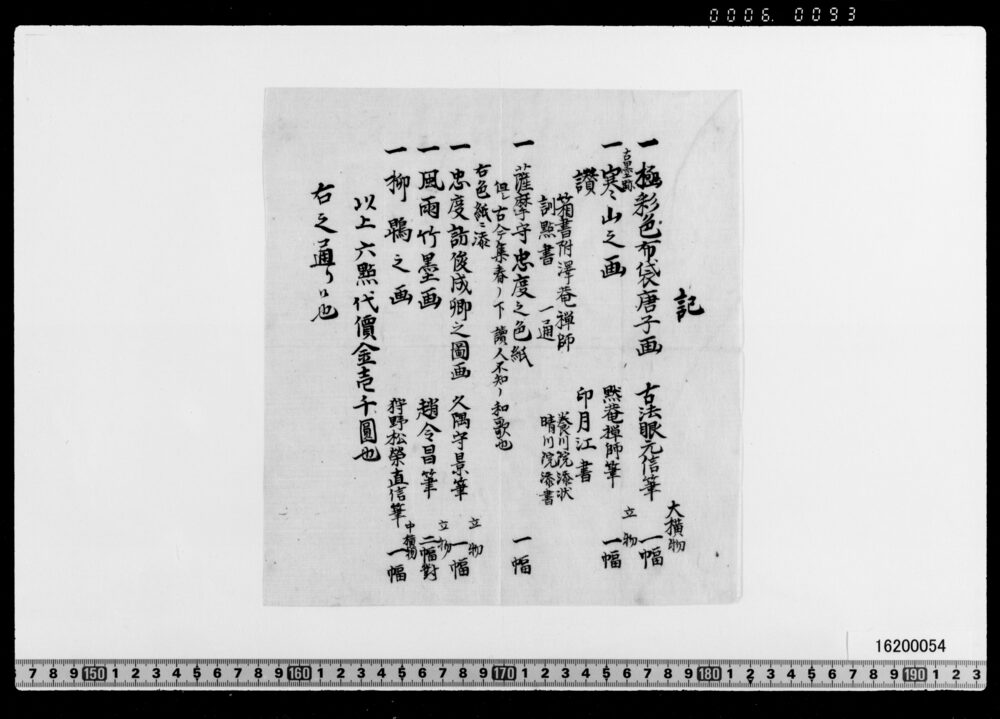 0006.0093
記
一 極彩色布袋唐子画 古法眼元信筆 大横物 一幅
古墨跡
一 寒山之画 黙菴禅師筆 立物 一幅
讃 印月江書
箱書附澤菴禅師
訓點書 一通
養川院添状
晴川院添書
一 薩摩守忠度之色紙 一幅
但シ古今集春ノ下 讀人不知ノ和歌也
右色紙ニ添
一 忠度訪俊成卿之圖画 久隅守景筆 立物 一幅
一 風雨竹墨画 趙令昌筆 立物 二幅對
一 柳鴉之画 狩野松榮直信筆 中横物 一幅
以上六點代價金壱千圓也
右之通リ也
16200054
7 8 9 150 1 2 3 4 5 6 7 8 9 160 1 2 3 4 5 6 7 8 9 170 1 2 3 4 5 6 7 8 9 180 1 2 3 4 5 6 7 8 9 190 1 2 3